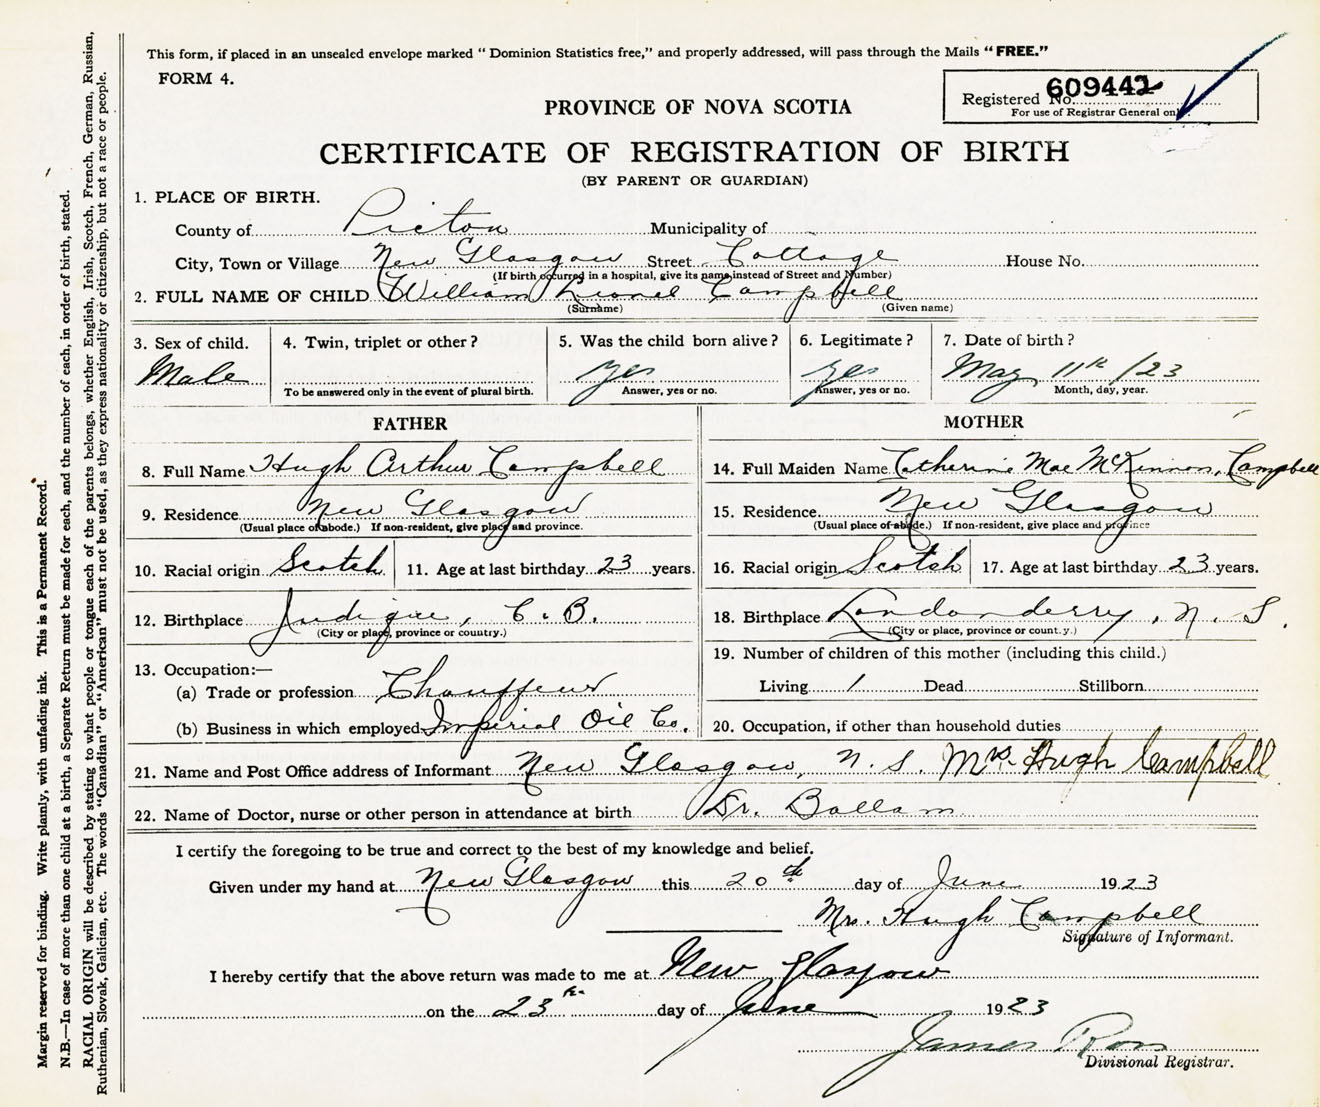 This form, if placed in an unsealed envelope marked "Dominion Statistics free," and properly addressed, will pass through the Mails "FREE."
FORM 4.
Registered No. 609442
For use of Registrar General only.
PROVINCE OF NOVA SCOTIA
CERTIFICATE OF REGISTRATION OF BIRTH
(BY PARENT OR GUARDIAN)
1. PLACE OF BIRTH.
County of Pictou Municipality of
City, Town or Village New Glasgow Street Cottage House No.
(If birth occurred in a hospital, give its name instead of Street and Number)
2. FULL NAME OF CHILD William Lionel Campbell
(Surname) (Given name)
3. Sex of child. Male
4. Twin, triplet or other?
To be answered only in the event of plural birth.
5. Was the child born alive? Yes
Answer, yes or no.
6. Legitimate? Yes
Answer, yes or no.
7. Date of birth? May 11th /23
Month, day, year.
FATHER
8. Full Name Hugh Arthur Campbell
9. Residence New Glasgow
(Usual place of abode.) If non-resident, give place and province.
10. Racial origin Scotch 11. Age at last birthday 23 years.
12. Birthplace Judique, C. B.
(City or place, province or country.)
13. Occupation:—
(a) Trade or profession Chauffeur
(b) Business in which employed Imperial Oil Co.
MOTHER
14. Full Maiden Name Catherine Mae McKinnon, Campbell
15. Residence New Glasgow
(Usual place of abode.) If non-resident, give place and province
16. Racial origin Scotch 17. Age at last birthday 23 years.
18. Birthplace Londonderry, N. S.
(City or place, province or country.)
19. Number of children of this mother (including this child.)
Living 1 Dead Stillborn
20. Occupation, if other than household duties
21. Name and Post Office address of Informant New Glasgow, N. S. Mrs. Hugh Campbell
22. Name of Doctor, nurse or other person in attendance at birth Dr. Ballam
I certify the foregoing to be true and correct to the best of my knowledge and belief.
Given under my hand at New Glasgow this 20th day of June 1923
Mrs. Hugh Campbell
Signature of Informant.
I hereby certify that the above return was made to me at New Glasgow
on the 23rd day of June 1923
James Ross
Divisional Registrar.
Margin reserved for binding. Write plainly, with unfading ink. This is a Permanent Record.
N.B.—In case of more than one child at a birth, a Separate Return must be made for each, and the number of each, in order of birth, stated.
RACIAL ORIGIN will be described by stating to what people or tongue each of the parents belongs, whether English, Irish, Scotch, French, German, Russian,
Ruthenian, Slovak, Galician, etc. The words "Canadian" or "American" must not be used, as they express nationality or citizenship, but not a race or people.